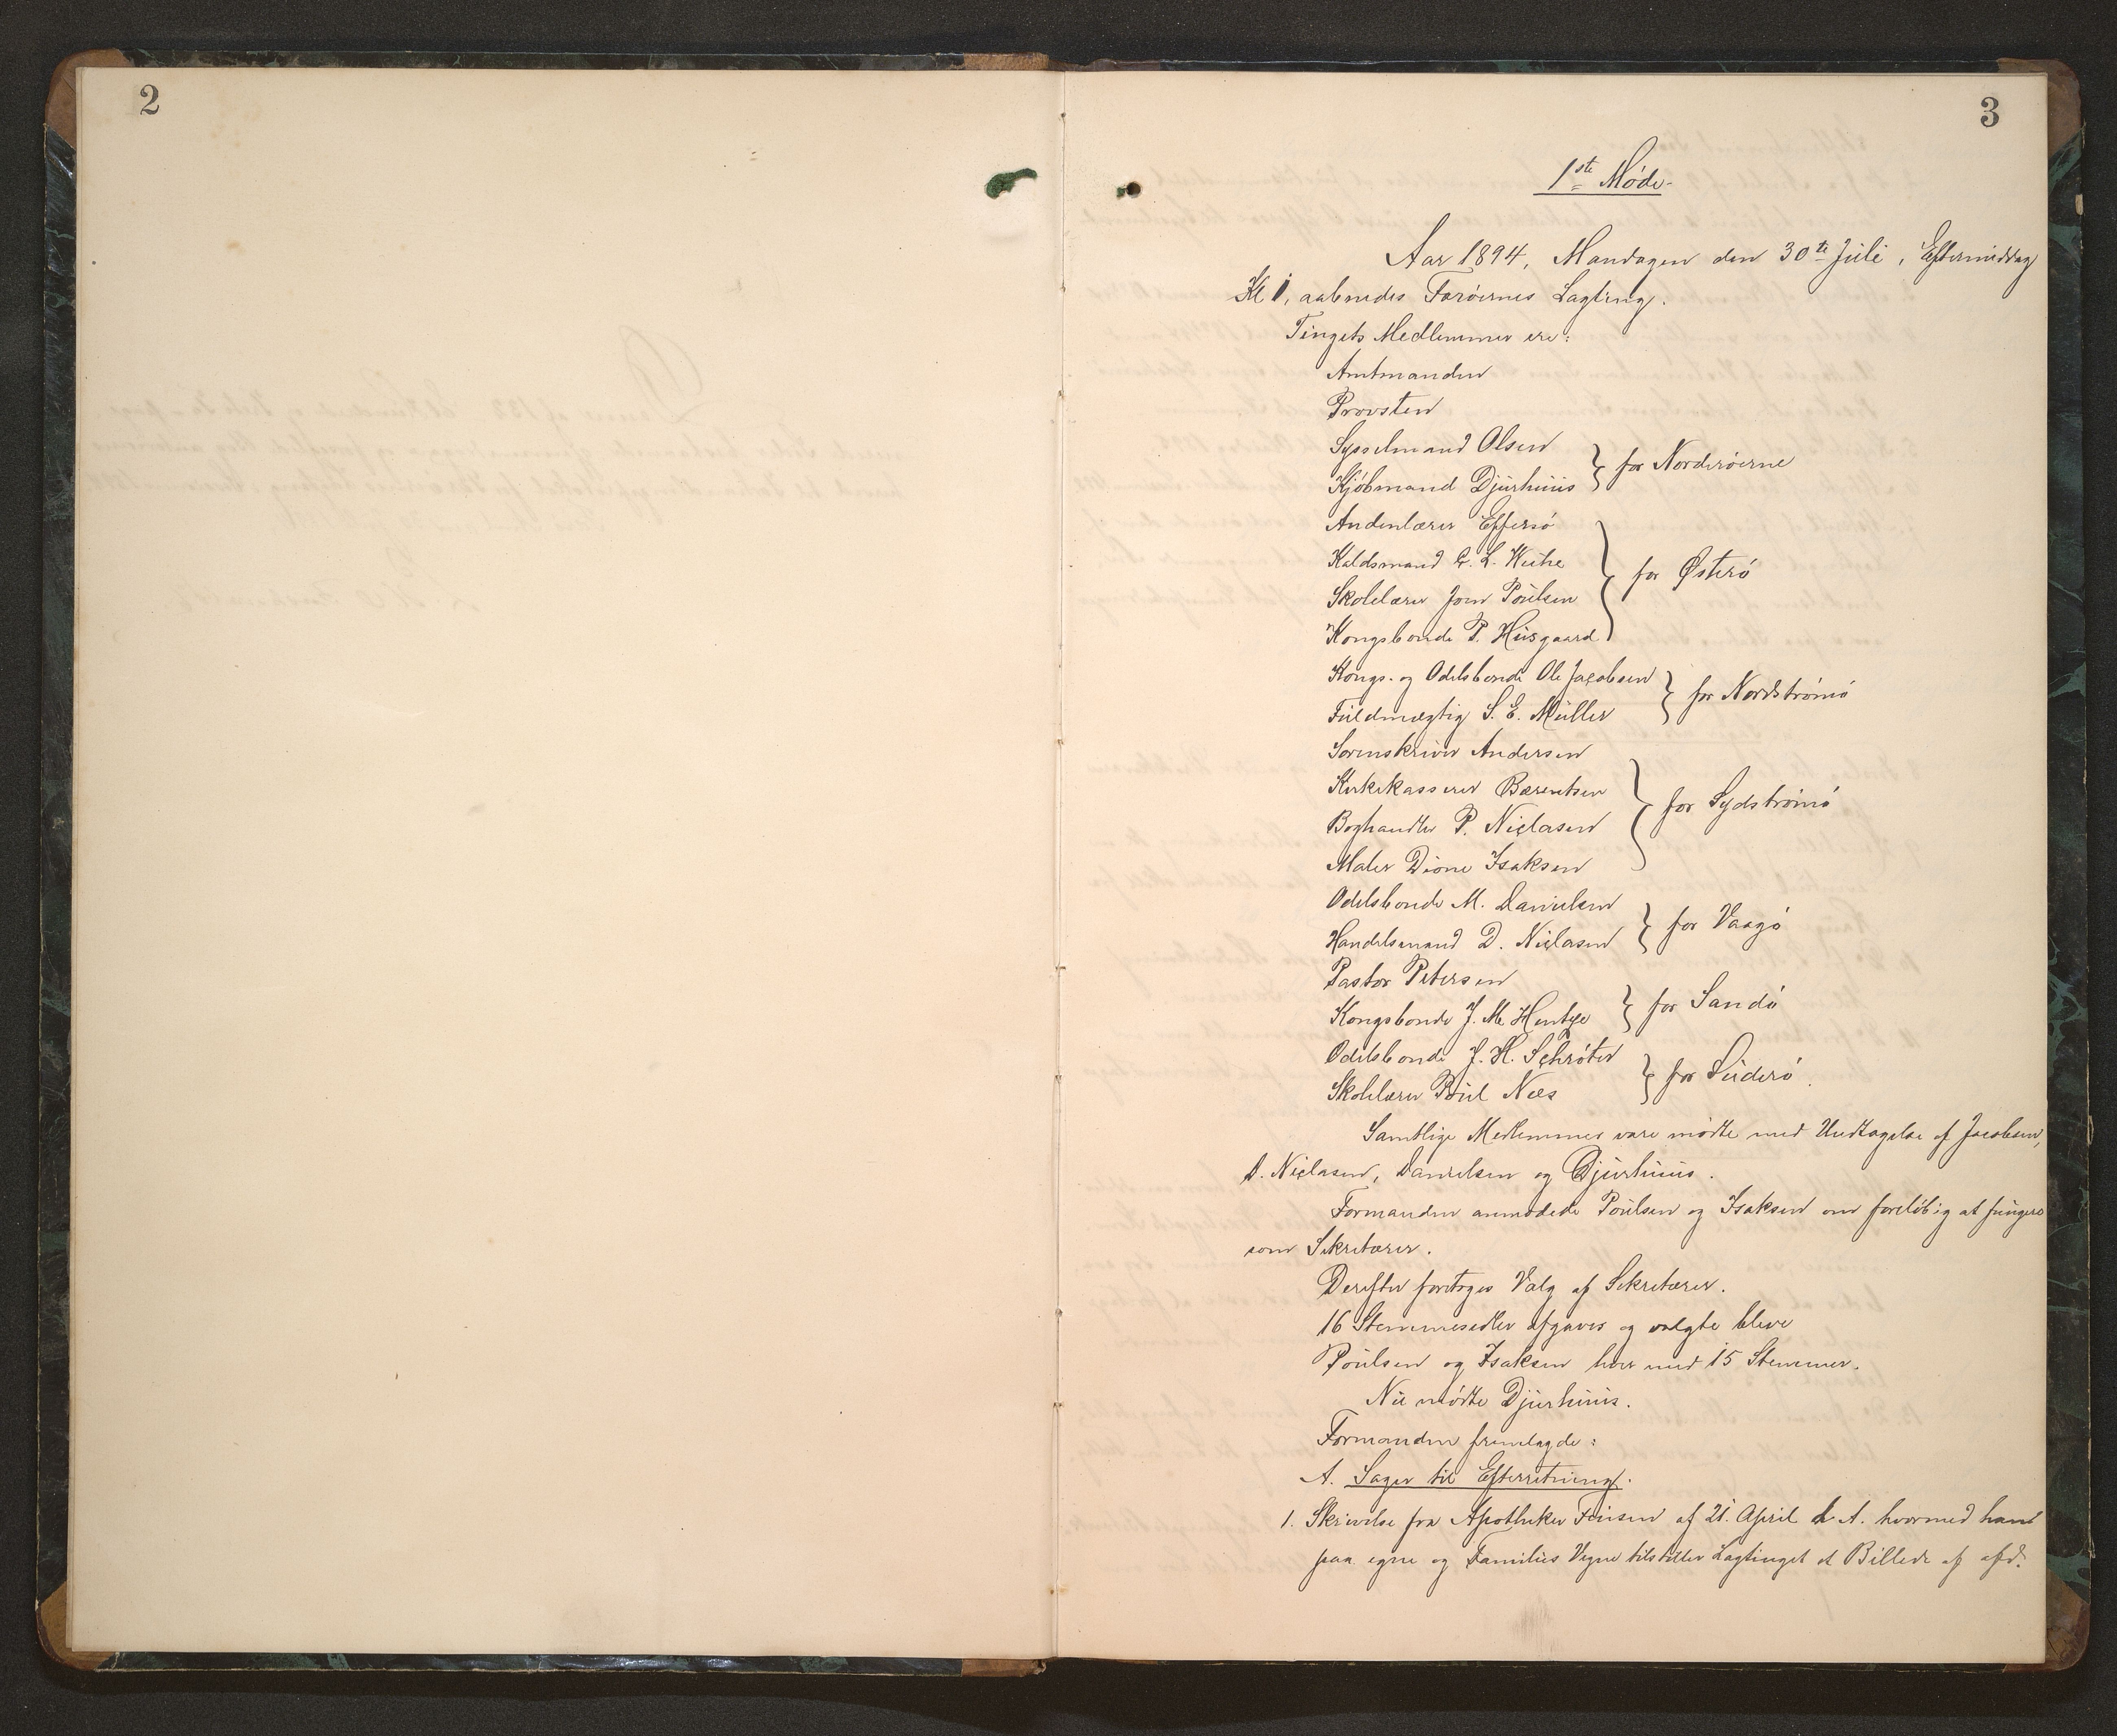 2
3
1ste Møde.
Aar 1894, Mandagen den 30te Juli, Eftermiddag
Kl 1, aabnedes Færøernes Lagting.
Tingets Medlemmer ere:
Amtmanden
Provsten
Sysselmand Olsen
Kjøbmand Djurhuus } for Norderøerne
Andenlærer Effersø
Kaldsmand G. L. Weihe
Skolelærer Joen Poulsen
Kongsbonde P. Husgaard } for Østerø
Kongs- og Odelsbonde Ole Jacobsen
Fuldmægtig S. E. Müller } for Nordstrømø
Sorenskriver Andersen
Kirkekasserer Bærentsen
Boghandler P. Niclasen
Maler Dione Isaksen } for Sydstrømø
Odelsbonde M. Danielsen
Handelsmand D. Niclasen } for Vaagø
Pastor Petersen
Kongsbonde J. M. Hentze } for Sandø
Odelsbonde J. H. Schrøter
Skolelærer Poul Nees } for Suderø.
Samtlige Medlemmer vare mødte med Undtagelse af Jacobsen,
D. Niclasen, Danielsen og Djurhuus.
Formanden anmodede Poulsen og Isaksen om foreløbig at fungere
som Sekretærer.
Derefter foretoges Valg af Sekretærer.
16 Stemmesedler afgaves og valgte bleve
Poulsen og Isaksen hver med 15 Stemmer.
Nu mødte Djurhuus.
Formanden fremlagde:
A. Sager til Efterretning.
1. Skrivelse fra Apotheker Finsen af 21. April d. A. hvormed han
paa egne og Families Vegne tilstiller Lagtinget et Billede af afd.